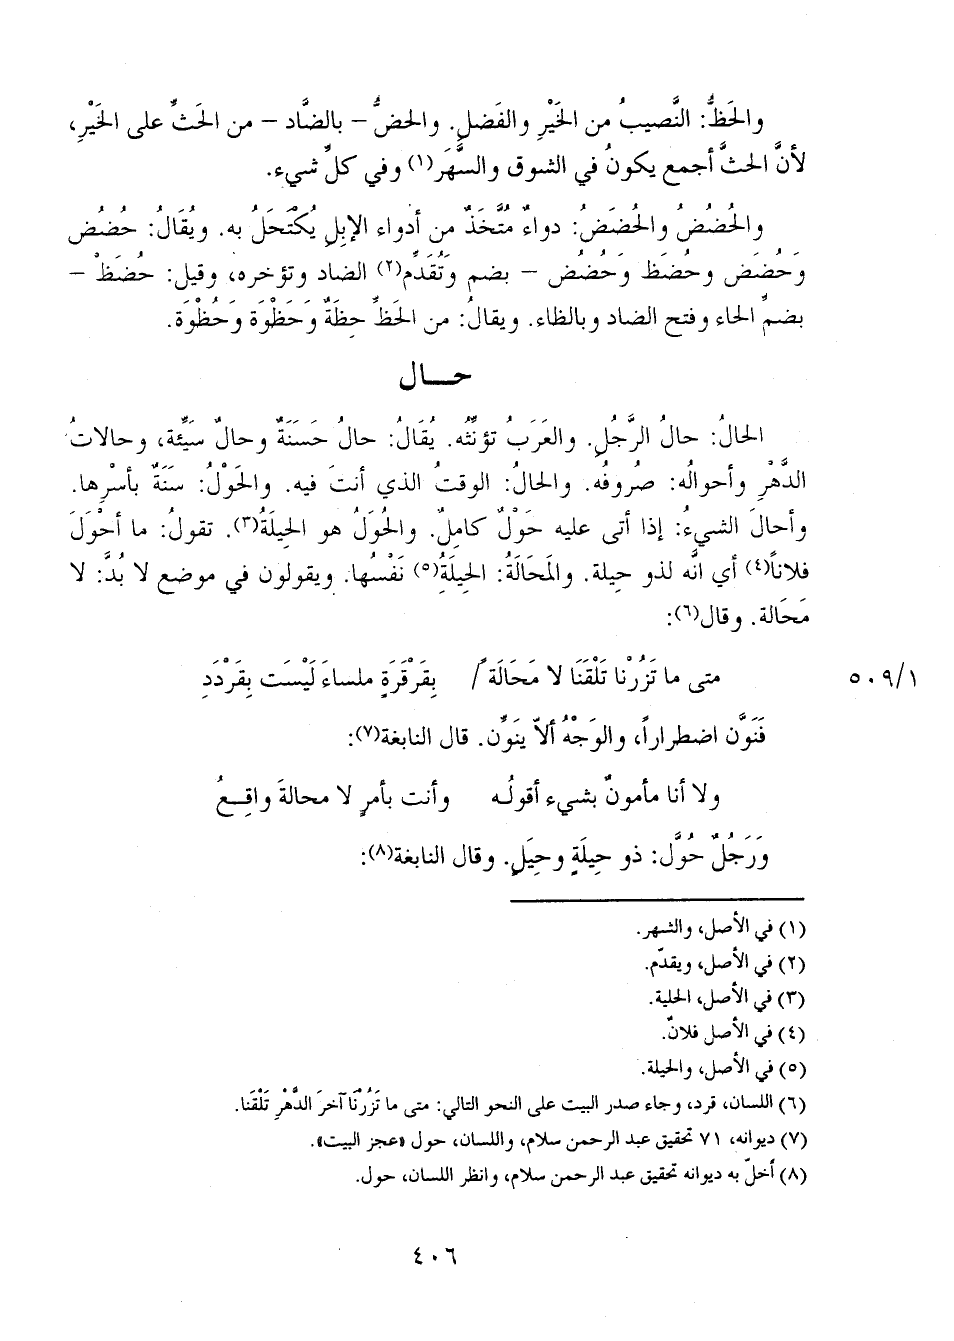 والحَظُّ: النَّصيبُ من الخَيْرِ والفَضلِ. والحضُّ – بالضَّاد – من الحَثِّ على الخَيْرِ،
لأنَّ الحثَّ أجمع يكونُ في الشوق والسَّهَر(١) وفي كلِّ شيء.
والحُضُضُ والحُضَضُ: دواءٌ مُتَّخَذٌ من أدواء الإبلِ يُكْتَحَلُ به. ويُقَالُ: حُضُض
وَحُضَض وحُضَظ وَحُضُض – بضم وَتُقَدِّم(٢) الضاد وتؤخره، وقيل: حُضَظْ –
بضمِّ الحاء وفتح الضاد وبالظاء. ويقالُ: من الحَظِّ حِظَةٌ وَحَظْوَة وَحُظْوَة.
حـــال
الحالُ: حالُ الرَّجُلِ. والعَرَبُ تؤنِّثُه. يُقَالُ: حالُ حَسَنَةٌ وحالٌ سَيِّئة، وحالاتُ
الدَّهْرِ وأحوالُه: صُروفُه. والحالُ: الوقتُ الذي أنتَ فيه. والحَوْلُ: سَنَةٌ بأسْرِها.
وأحالَ الشيءُ: إذا أتى عليه حَوْلٌ كامِلٌ. والحُوَلُ هو الحِيلَةُ(٣). تقولُ: ما أحْوَلَ
فلاناً(٤) أي انَّه لذو حيلة. والمَحَالَةُ: الحِيلَةِ(٥) نَفْسُها. ويقولون في موضع لا بُدَّ: لا
مَحَالة. وقال(٦):
متى ما تَزُرْنا تَلْقَنَا لا مَحَالَةً / بِقَرْقَرَةٍ ملساءَ لَيْسَت بِقَرْدَدِ ٥٠٩/١
فَنَوَّن اضطراراً، والوَجْهُ ألاّ ينَوِّن. قال النابغة(٧):
ولا أنا مأمونٌ بشيء أقولُـه وأنت بأمرٍ لا محالةَ واقِـعُ
وَرَجُلٌ حُوَّل: ذو حِيلَةٍ وحِيَلٍ. وقال النابغة(٨):
(١) في الأصل، والشهر.
(٢) في الأصل، ويقدّم.
(٣) في الأصل، الحلية.
(٤) في الأصل فلانٌ.
(٥) في الأصل، والحيلة.
(٦) اللسان، قرد، وجاء صدر البيت على النحو التالي: متى ما تَزُرْنَا آخرَ الدَّهْرِ تَلْقَنا.
(٧) ديوانه، ٧١ تحقيق عبد الرحمن سلام، واللسان، حول «عجز البيت».
(٨) أخلّ به ديوانه تحقيق عبد الرحمن سلام، وانظر اللسان، حول.
٤٠٦